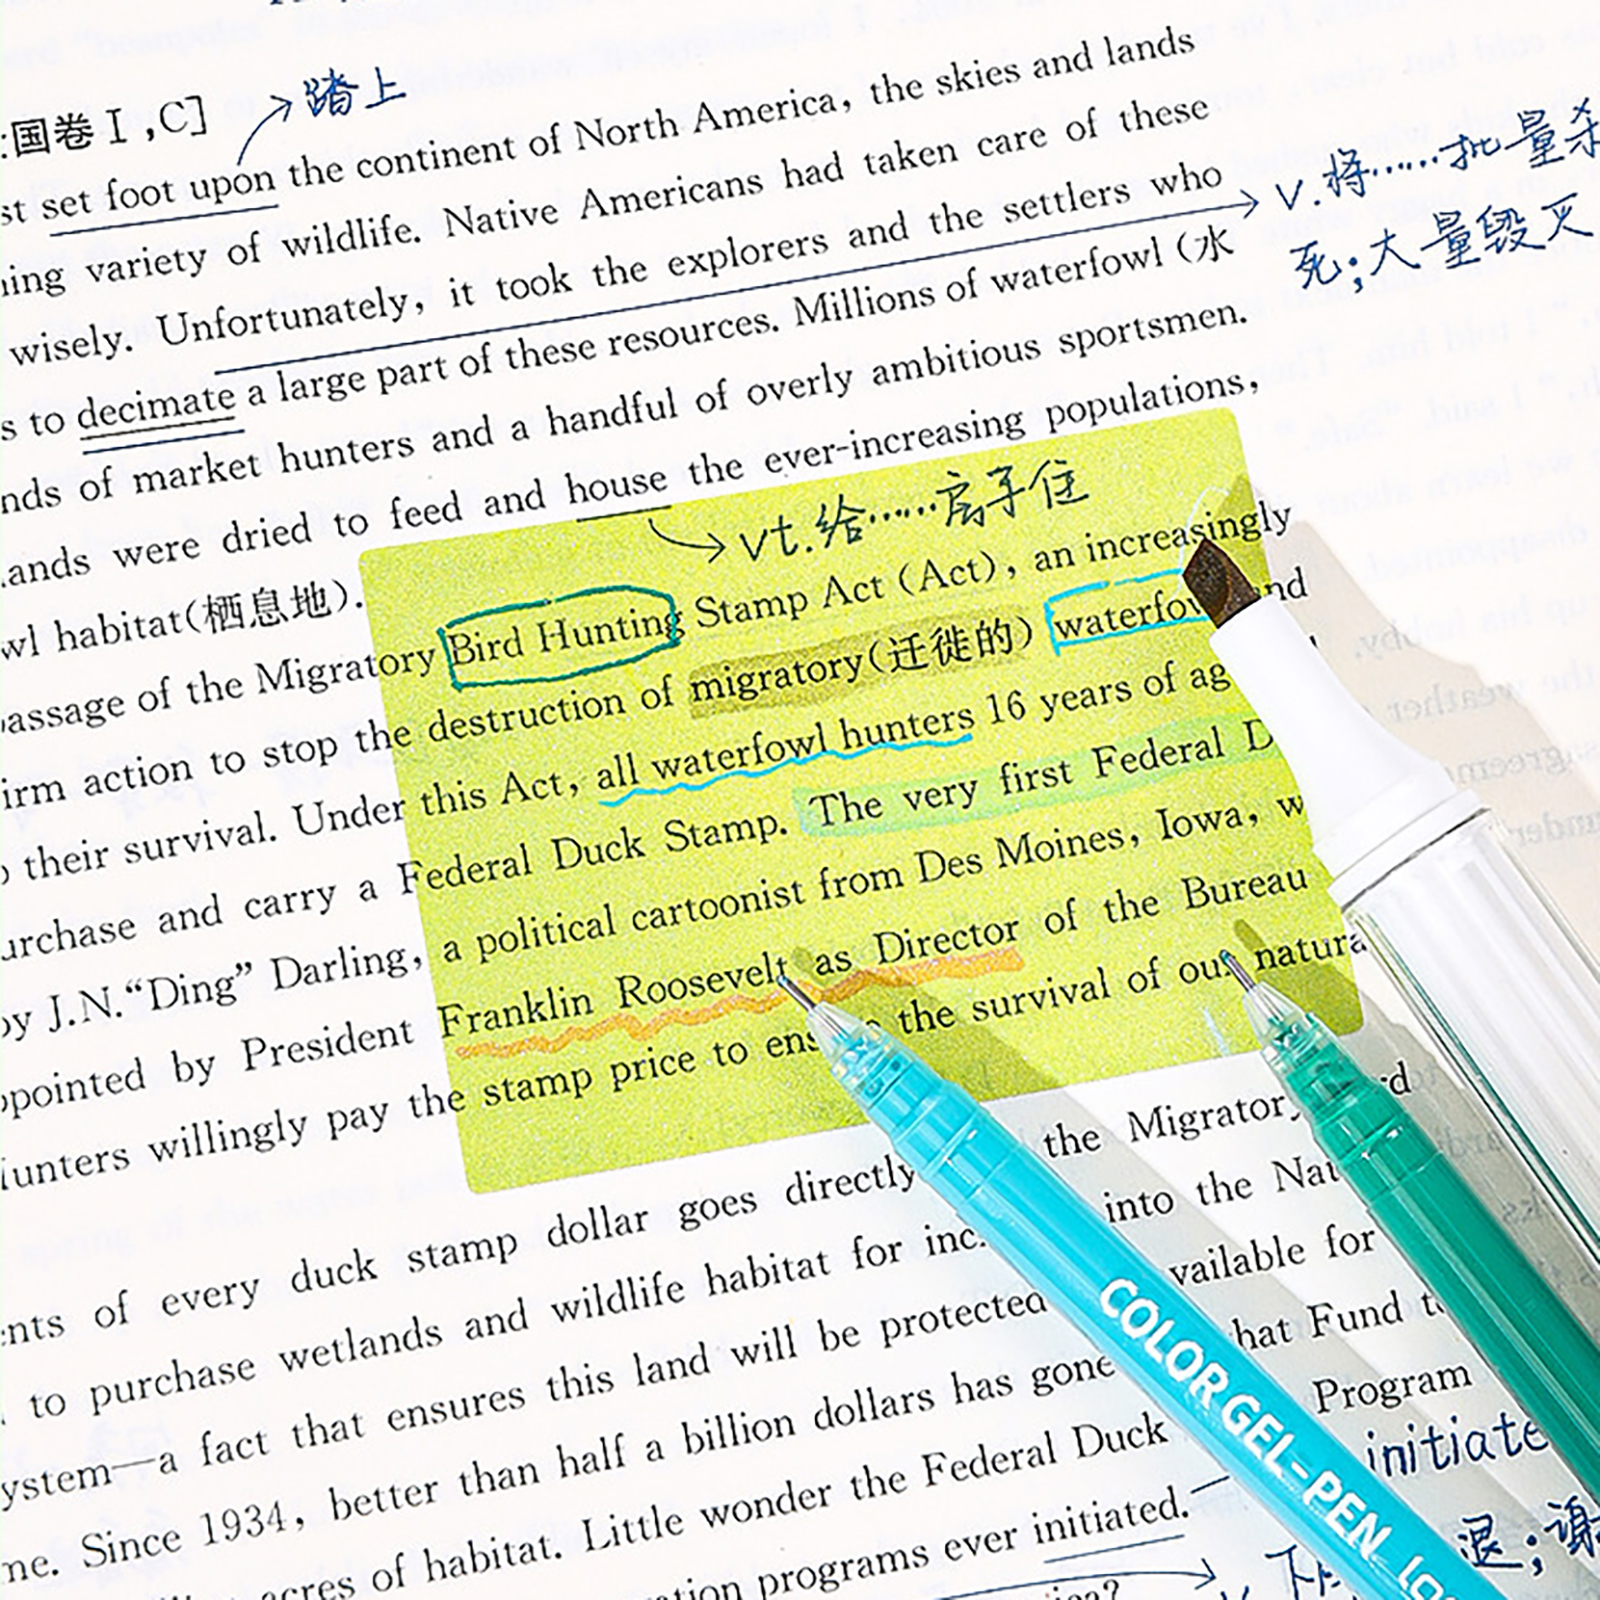 国卷Ⅰ,C]
踏上
set foot upon the continent of North America, the skies and lands
variety of wildlife. Native Americans had taken care of these
v.将……批量杀
wisely. Unfortunately, it took the explorers and the settlers who
死;大量毁灭
to decimate a large part of these resources. Millions of waterfowl (水
of market hunters and a handful of overly ambitious sportsmen.
were dried to feed and house the ever-increasing populations,
habitat(栖息地).
vt.给……房子住
of the Migratory Bird Hunting Stamp Act (Act), an increasingly
action to stop the destruction of migratory(迁徙的)
their survival. Under this Act, all waterfowl hunters 16 years of
and carry a Federal Duck Stamp. The very first Federal D
by J.N.“Ding” Darling, a political cartoonist from Des Moines, Iowa, w
by President Franklin Roosevelt as Director of the Bureau
willingly pay the stamp price to the survival of our natura
of every duck stamp dollar goes directly the Migratory
to purchase wetlands and wildlife habitat for inc into the Nat
ystem—a fact that ensures this land will be protected vailable for
me. Since 1934, better than half a billion dollars has gone hat Fund
acres of habitat. Little wonder the Federal Duck Program
programs ever initiated.
initiate
退;谢
COLOR GEL-PEN